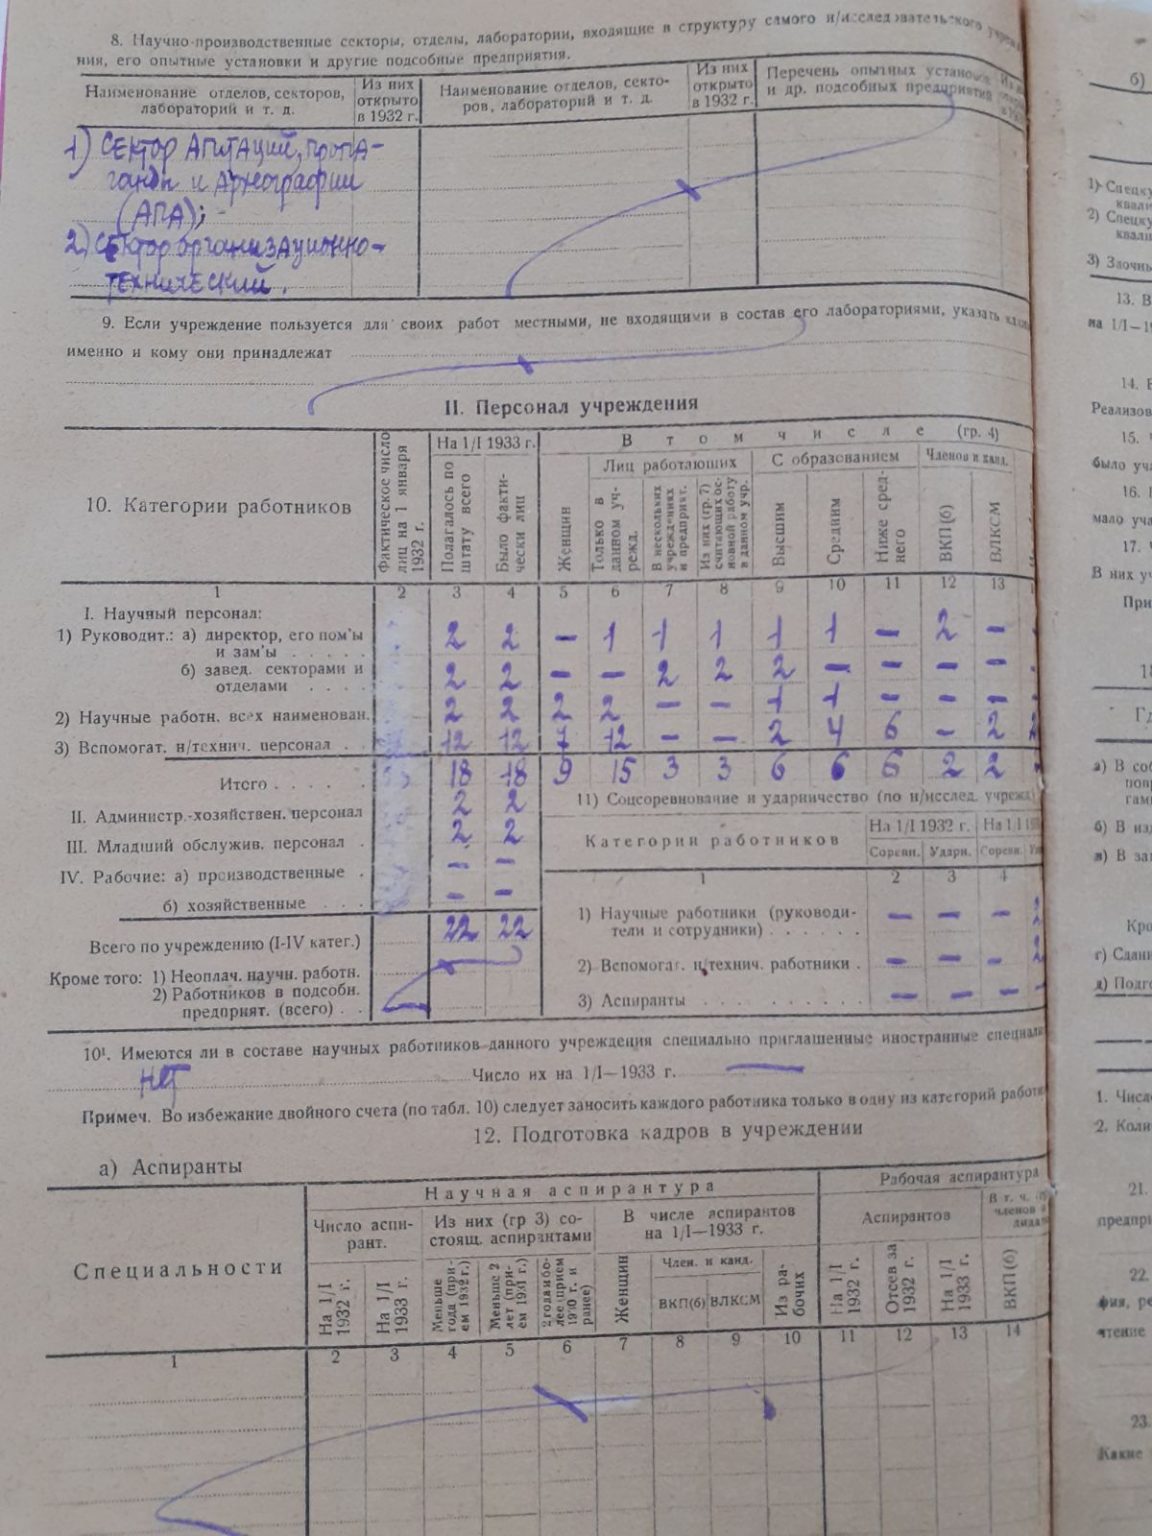 8. Научно-производственные секторы, отделы, лаборатории, входящие в структуру самого н/исследовательского
ния, его опытные установки и другие подсобные предприятия.
Наименование отделов, секторов, лабораторий и т. д.
Из них открыто в 1932 г.
Наименование отделов, секто-
ров, лабораторий и т. д.
Из них открыто в 1932 г.
Перечень опытных установ
и др. подсобных предприятий
1) Сектор Агитации, пропа-
ганды и Археографии
(АПА);
2) Сектор организационно-
технический.
9. Если учреждение пользуется для своих работ местными, не входящими в состав его лабораториями, указать
именно и кому они принадлежат
II. Персонал учреждения
10. Категории работников
Фактическое число лиц на 1 января 1932 г.
На 1/I 1933 г.
Полагалось по штату всего
Было факти-
чески лиц
В том числе (гр. 4)
Женщин
Лиц работающих
Только в данном уч-
режд.
В нескольких учреждениях и предприят.
Из них (гр. 7) считающих ос-
новной работу в данном учр.
С образованием
Высшим
Средним
Ниже сред-
него
Членов и канд.
ВКП(б)
ВЛКСМ
1 2 3 4 5 6 7 8 9 10 11 12 13
I. Научный персонал:
1) Руководит.: а) директор, его пом'ы
и зам'ы 2 2 – 1 1 1 1 1 – 2 –
б) завед. секторами и
отделами 2 2 – – 2 2 2 – – – –
2) Научные работн. всех наименован. 2 2 2 2 – – 1 1 – – –
3) Вспомогат. н/технич. персонал 12 12 7 12 – – 2 4 6 – 2
Итого 18 18 9 15 3 3 6 6 6 2 2
II. Администр.-хозяйствен. персонал 2 2
III. Младший обслужив. персонал 2 2
IV. Рабочие: а) производственные – –
б) хозяйственные – –
Всего по учреждению (I-IV катег.) 22 22
Кроме того: 1) Неоплач. научн. работн.
2) Работников в подсобн.
предприят. (всего)
11) Соцсоревнование и ударничество (по н/исслед. учрежд
Категории работников
На 1/I 1932 г.
Соревн. Ударн. Соревн.
1 2 3 4
1) Научные работники (руководи-
тели и сотрудники) – – –
2) Вспомогат. н/технич. работники – – –
3) Аспиранты – – –
10¹. Имеются ли в составе научных работников данного учреждения специально приглашенные иностранные специали
Нет Число их на 1/I—1933 г. —
Примеч. Во избежание двойного счета (по табл. 10) следует заносить каждого работника только в одну из категорий работн
12. Подготовка кадров в учреждении
а) Аспиранты
Специальности
Научная аспирантура
Число аспи-
рант.
На 1/I 1932 г.
На 1/I 1933 г.
Из них (гр 3) со-
стоящ. аспирантами
Меньше года (при-
ем 1932 г.)
Меньше 2 лет (при-
ем 1931 г.)
2 года и бо-
лее (прием 1930 г. и ранее)
В числе аспирантов
на 1/I—1933 г.
Женщин
Член. и канд.
ВКП(б)
ВЛКСМ
Из ра-
бочих
Рабочая аспирантура
Аспирантов
На 1/I 1932 г.
Отсев за 1932 г.
На 1/I 1933 г.
В т. ч.
членов
ВКП(б)
1 2 3 4 5 6 7 8 9 10 11 12 13 14
б)
1) Спецку
квали
2) Спецку
квали
3) Заочны
13. В
на 1/I—19
14.
Реализов
15.
было уча
16.
мало уча
17.
В них уч
При
18
а) В соб
б) В изд
в) В зав
Кро
г) Сдани
д) Подго
1. Число
2. Коли
21.
предпри
22.
фия, ре
чтение
23.
Какие